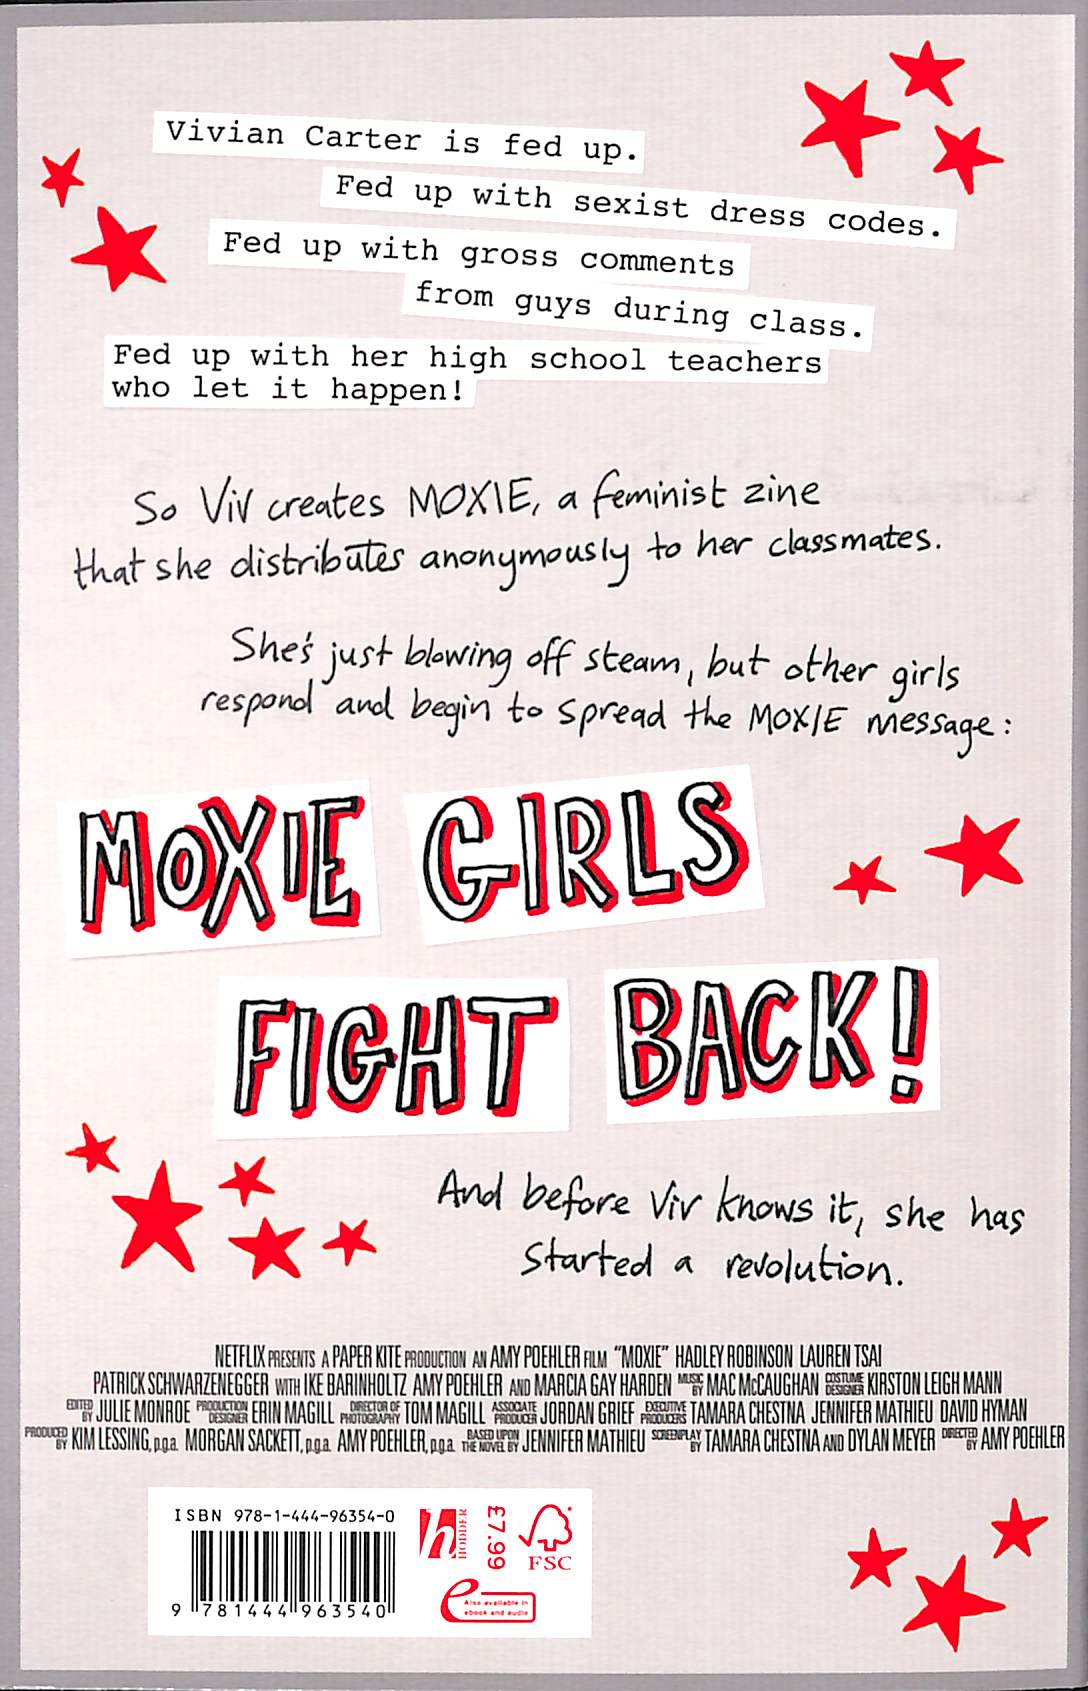 Vivian Carter is fed up.
Fed up with sexist dress codes.
Fed up with gross comments
from guys during class.
Fed up with her high school teachers
who let it happen!
So Viv creates MOXIE, a feminist zine
that she distributes anonymously to her classmates.
She's just blowing off steam, but other girls
respond and begin to spread the MOXIE message:
MOXIE GIRLS
FIGHT BACK!
And before Viv knows it, she has
started a revolution.
NETFLIX PRESENTS A PAPER KITE PRODUCTION AN AMY POEHLER FILM "MOXIE" HADLEY ROBINSON LAUREN TSAI
PATRICK SCHWARZENEGGER WITH IKE BARINHOLTZ AMY POEHLER AND MARCIA GAY HARDEN MUSIC BY MAC McCAUGHAN COSTUME DESIGNER KIRSTON LEIGH MANN
EDITED BY JULIE MONROE PRODUCTION DESIGNER ERIN MAGILL DIRECTOR OF PHOTOGRAPHY TOM MAGILL ASSOCIATE PRODUCER JORDAN GRIEF EXECUTIVE PRODUCERS TAMARA CHESTNA JENNIFER MATHIEU DAVID HYMAN
PRODUCED BY KIM LESSING, p.g.a. MORGAN SACKETT, p.g.a. AMY POEHLER, p.g.a. BASED UPON THE NOVEL BY JENNIFER MATHIEU SCREENPLAY BY TAMARA CHESTNA AND DYLAN MEYER DIRECTED BY AMY POEHLER
ISBN 978-1-444-96354-0
9 781444 963540
h HODDER
£7.99
FSC
e Also available in
ebook and audio